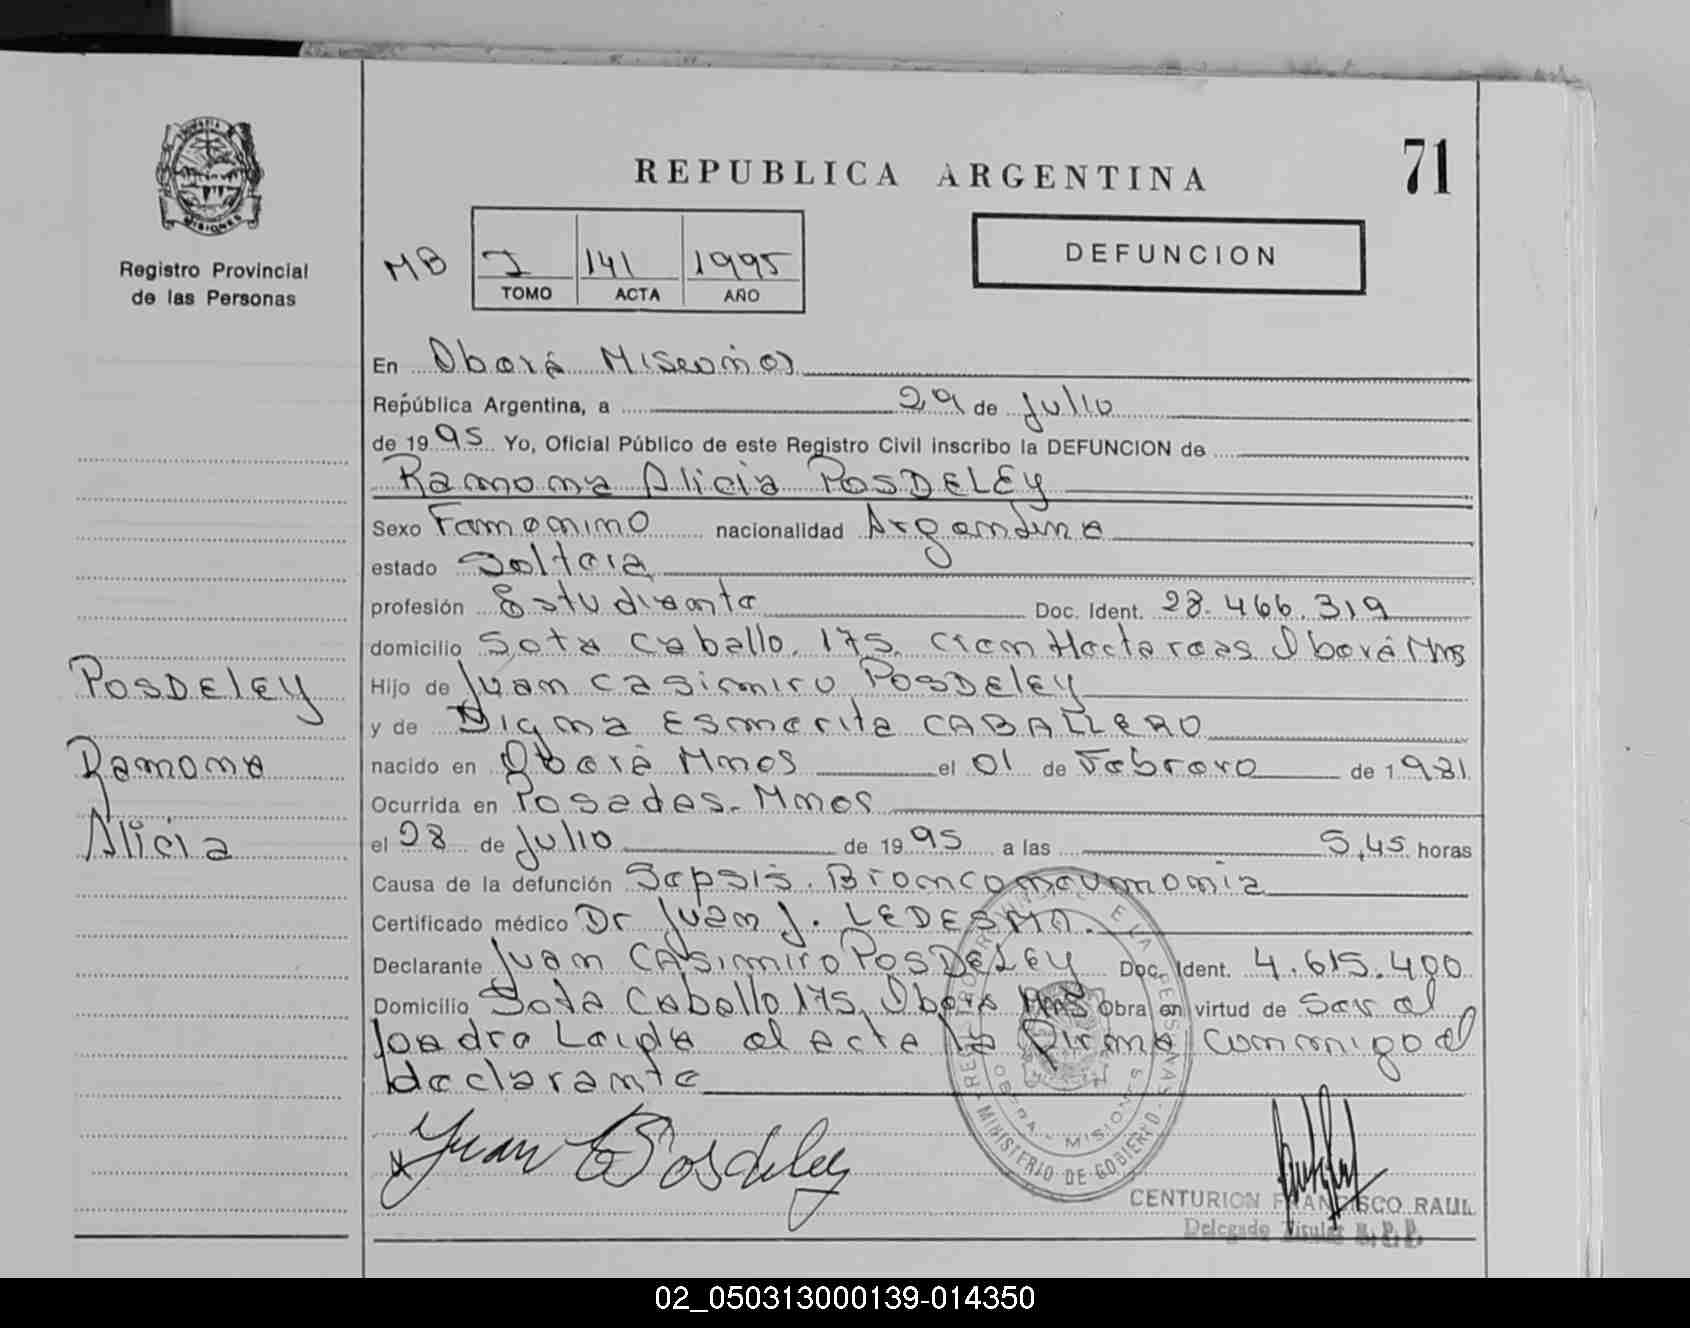 MISIONES
Registro Provincial
de las Personas
REPUBLICA ARGENTINA
71
MB
I 141 1995
TOMO ACTA AÑO
DEFUNCION
En Oberá Misiones
República Argentina, a 29 de Julio
de 1995 Yo, Oficial Público de este Registro Civil inscribo la DEFUNCION de
Ramona Alicia POSDELEY
Sexo Femenino nacionalidad Argentina
estado Soltera
profesión Estudiante Doc. Ident. 28.466.319
domicilio Sota Caballo 175. Cien Hectareas Oberá Mns
Hijo de Juan Casimiro POSDELEY
y de Digna Esmerita CABALLERO
nacido en Oberá Mnes el 01 de Febrero de 1981
Ocurrida en Posadas. Mnes
el 28 de Julio de 1995 a las 5,45 horas
Causa de la defunción Sepsis. Bronconeumonia
Certificado médico Dr Juan J. LEDESMA.
Declarante Juan CASIMIRO POSDELEY Doc. Ident. 4.615.400
Domicilio Sota Caballo 175, Oberá Mns Obra en virtud de Ser el
padre Leida el acta la firma conmigo el
declarante
POSDELEY
Ramona
Alicia
Juan C Posdeley
MINISTERIO DE GOBIERNO
OBERA - MISIONES
CENTURION FRANCISCO RAUL
Delegado Titular
02_050313000139-014350